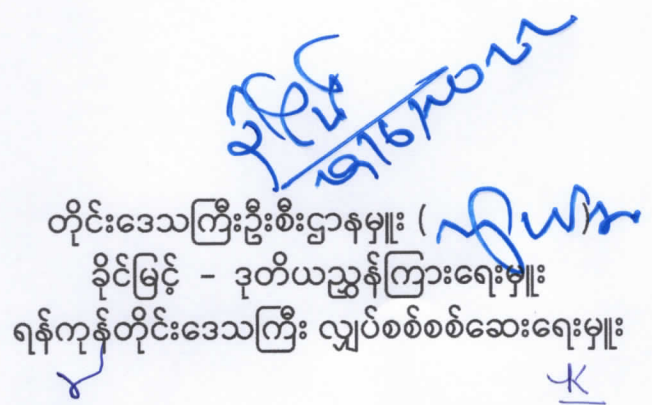 တိုင်းဒေသကြီးဦးစီးဌာနမှူး (
ခိုင်မြင့် - ဒုတိယညွှန်ကြားရေးမှူး
ရန်ကုန်တိုင်းဒေသကြီး လျှပ်စစ်စစ်ဆေးရေးမှူး